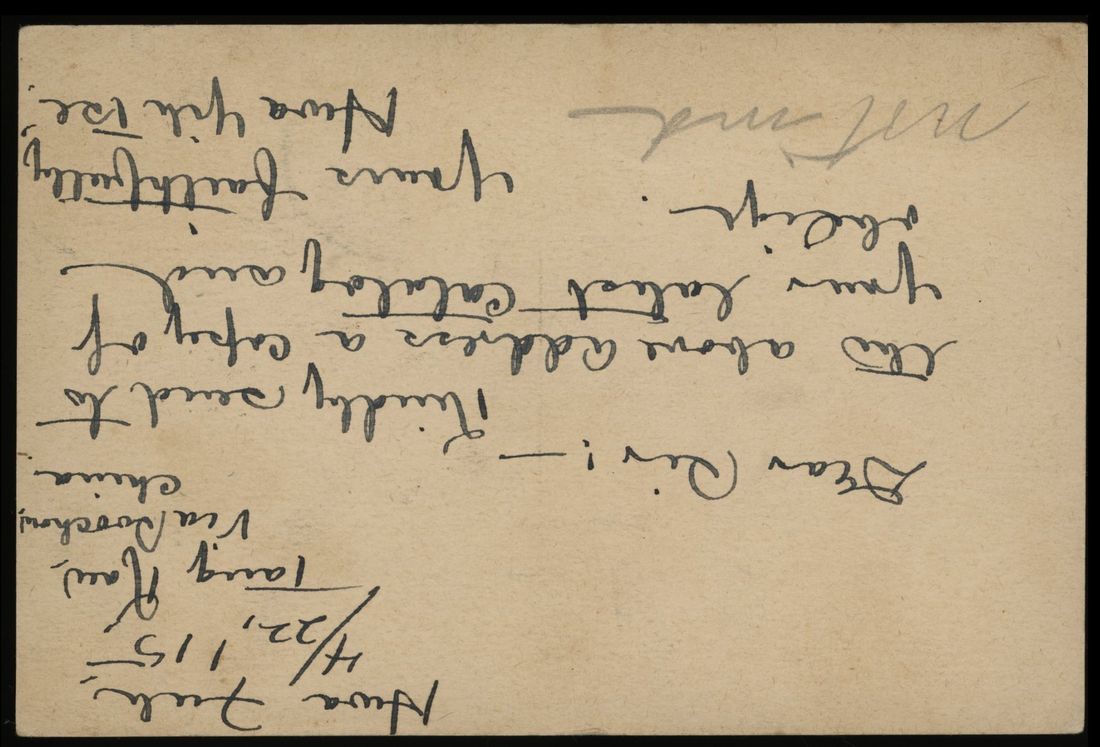 Hwa Zuh,
4/22, 115
Tang Kow,
Via Soochow,
China.
Dear Sir : —
Kindly send to
the above address a copy of
your latest catalog and
oblige.
Yours faithfully,
Hwa Yih Tse.